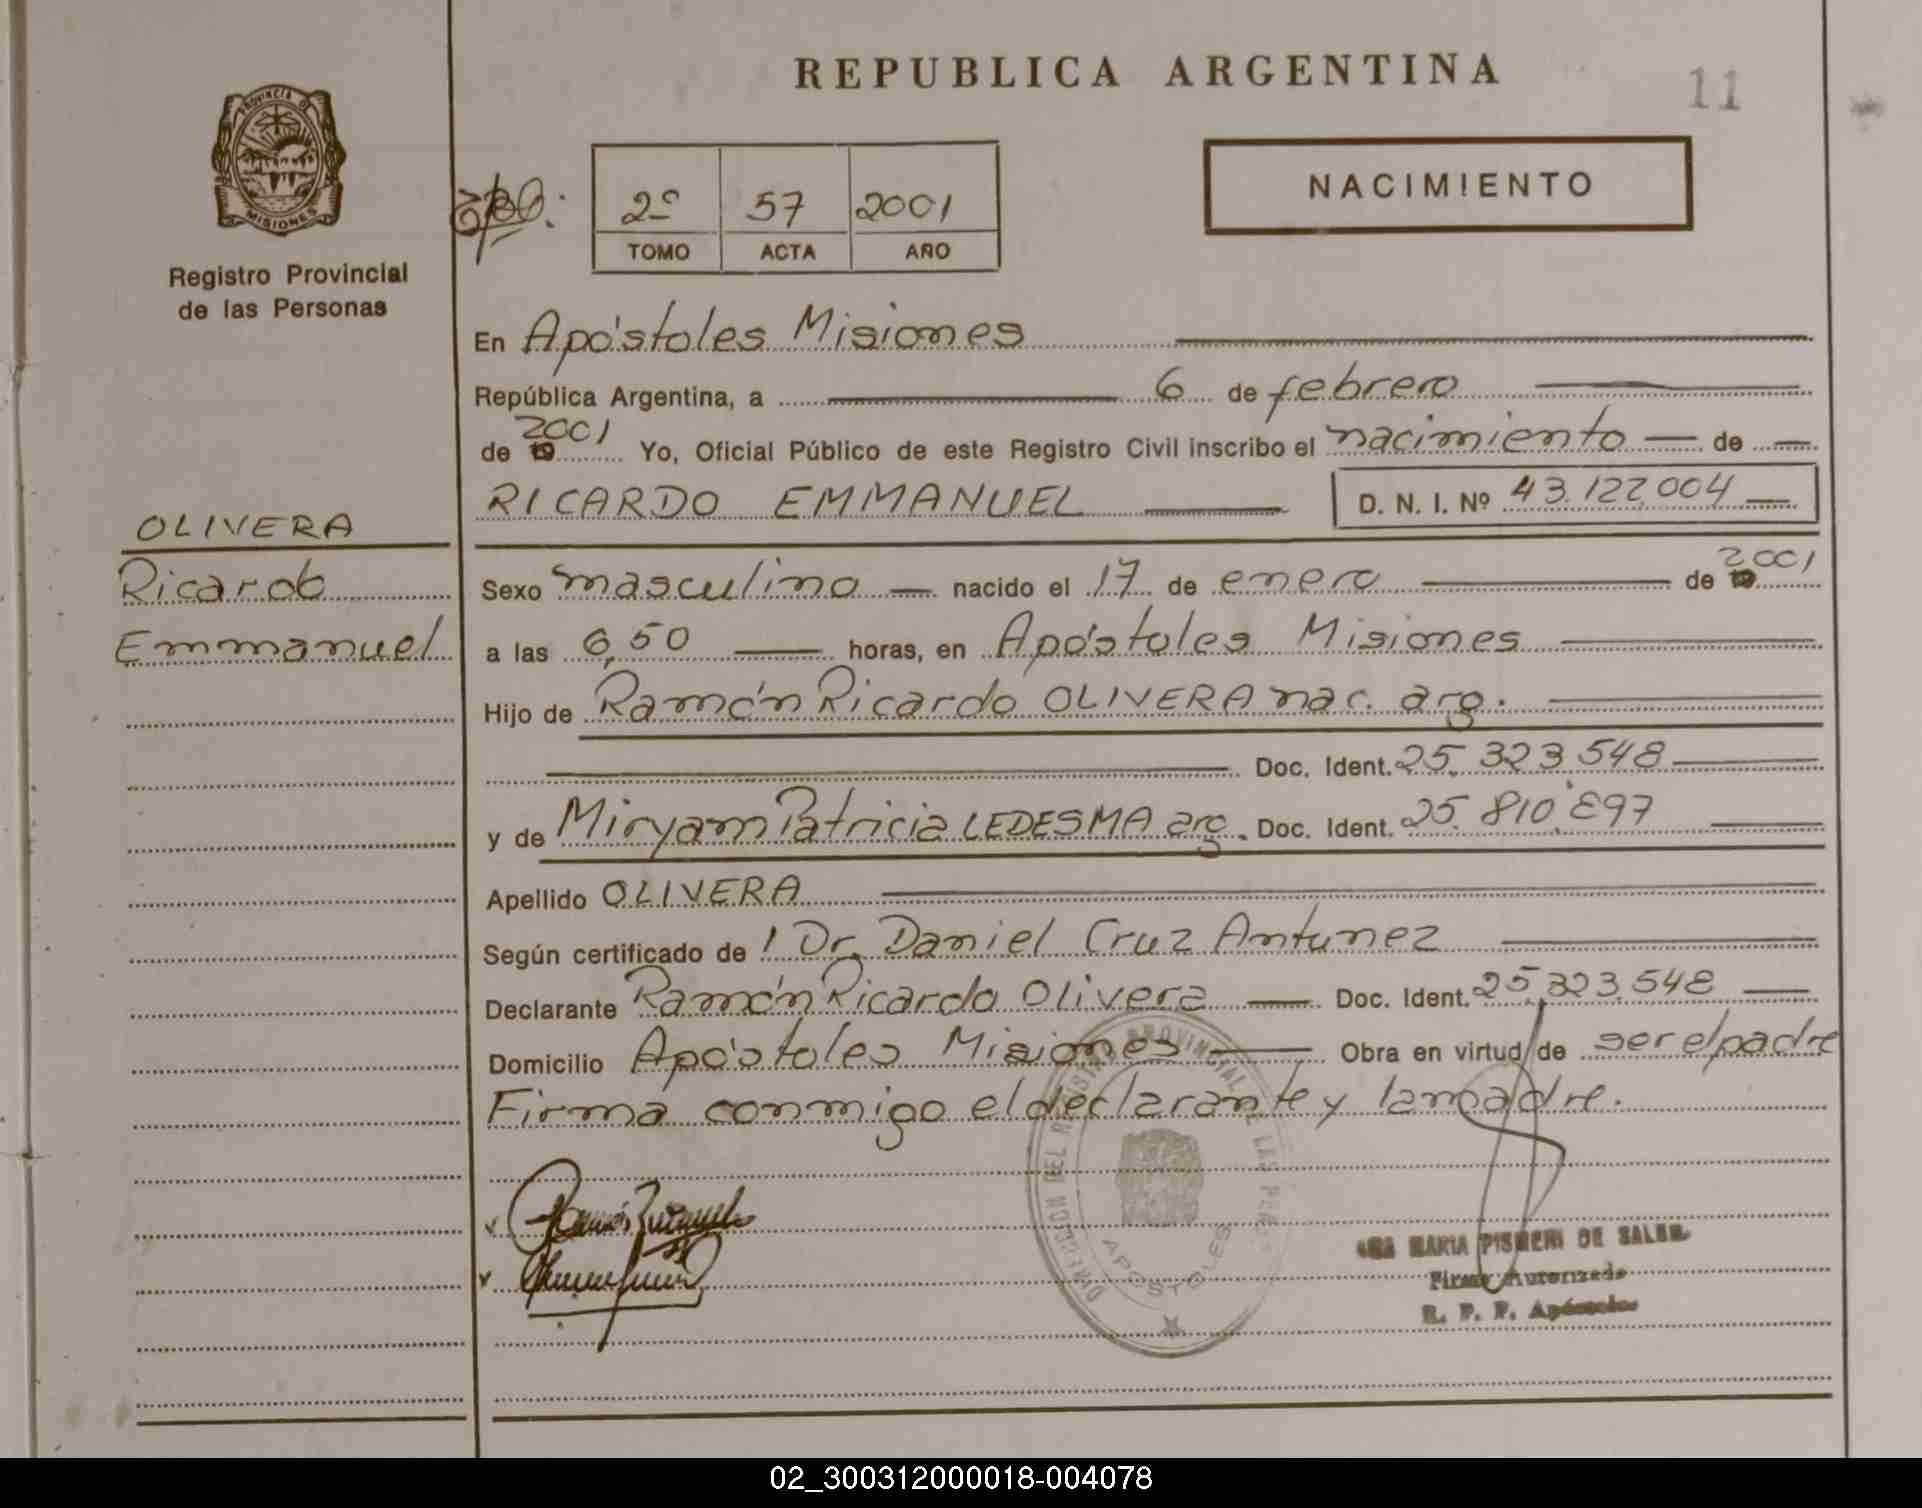 REPUBLICA ARGENTINA
11
PROVINCIA DE
MISIONES
Registro Provincial
de las Personas
2º 57 2001
TOMO ACTA AÑO
NACIMIENTO
En Apóstoles Misiones
República Argentina, a 6 de febrero
de 19 2001 Yo, Oficial Público de este Registro Civil inscribo el nacimiento de
RICARDO EMMANUEL D. N. I. Nº 43.122.004
OLIVERA
Ricardo
Emmanuel
Sexo masculino nacido el 17 de enero de 19 2001
a las 6,50 horas, en Apóstoles Misiones
Hijo de Ramón Ricardo OLIVERA nac. arg.
Doc. Ident. 25.323.548
y de Miryam Patricia LEDESMA arg. Doc. Ident. 25.810.897
Apellido OLIVERA
Según certificado de Dr. Daniel Cruz Antunez
Declarante Ramón Ricardo Olivera Doc. Ident. 25.323.548
Domicilio Apóstoles Misiones Obra en virtud de ser el padre
Firma conmigo el declarante y la madre.
DIRECCION DEL REGISTRO PROVINCIAL DE LAS
APOSTOLES
MARIA DE
Firma Autorizada
R. P. P. Apóstoles
02_300312000018-004078